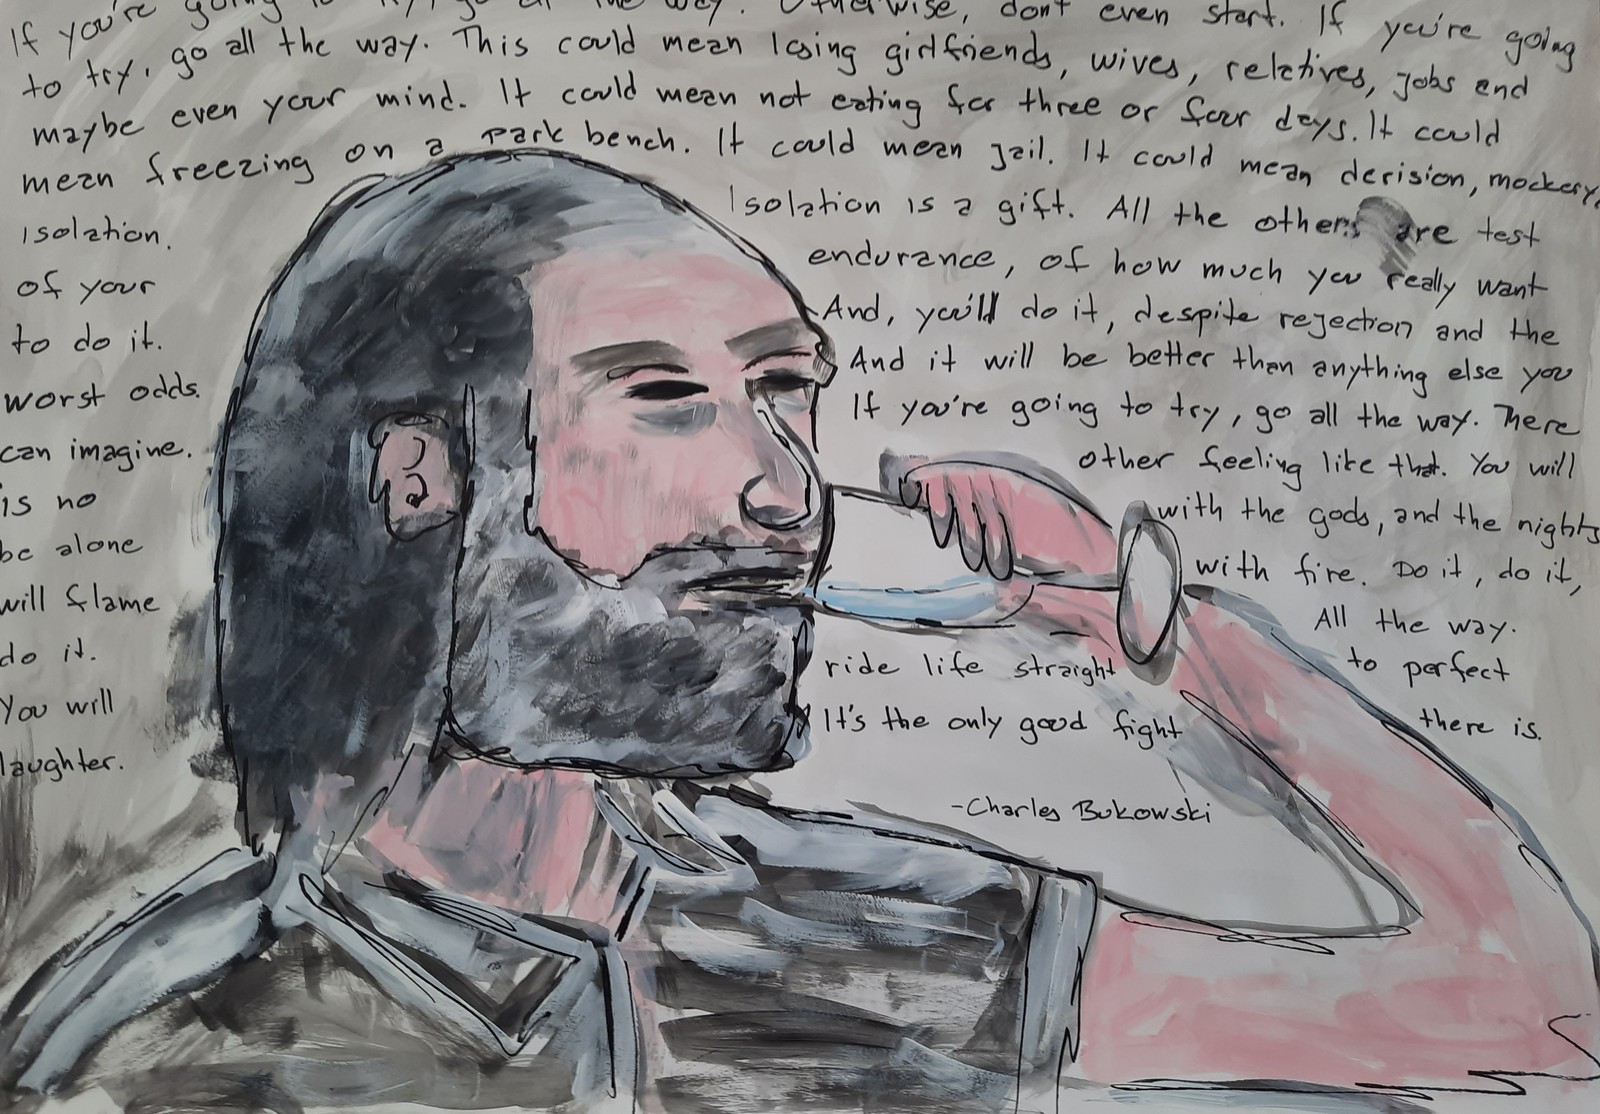 If you're going to try, go all the way. Otherwise, don't even start. If you're going
to try, go all the way. This could mean losing girlfriends, wives, relatives, jobs and
maybe even your mind. It could mean not eating for three or four days. It could
mean freezing on a park bench. It could mean jail. It could mean derision, mockery,
isolation. Isolation is a gift. All the others are test
of your endurance, of how much you really want
to do it. And, you'll do it, despite rejection and the
worst odds. And it will be better than anything else you
can imagine. If you're going to try, go all the way. There
is no other feeling like that. You will
be alone with the gods, and the nights
will flame with fire. Do it, do it,
do it. All the way.
You will ride life straight to perfect
laughter. It's the only good fight there is.
-Charles Bukowski